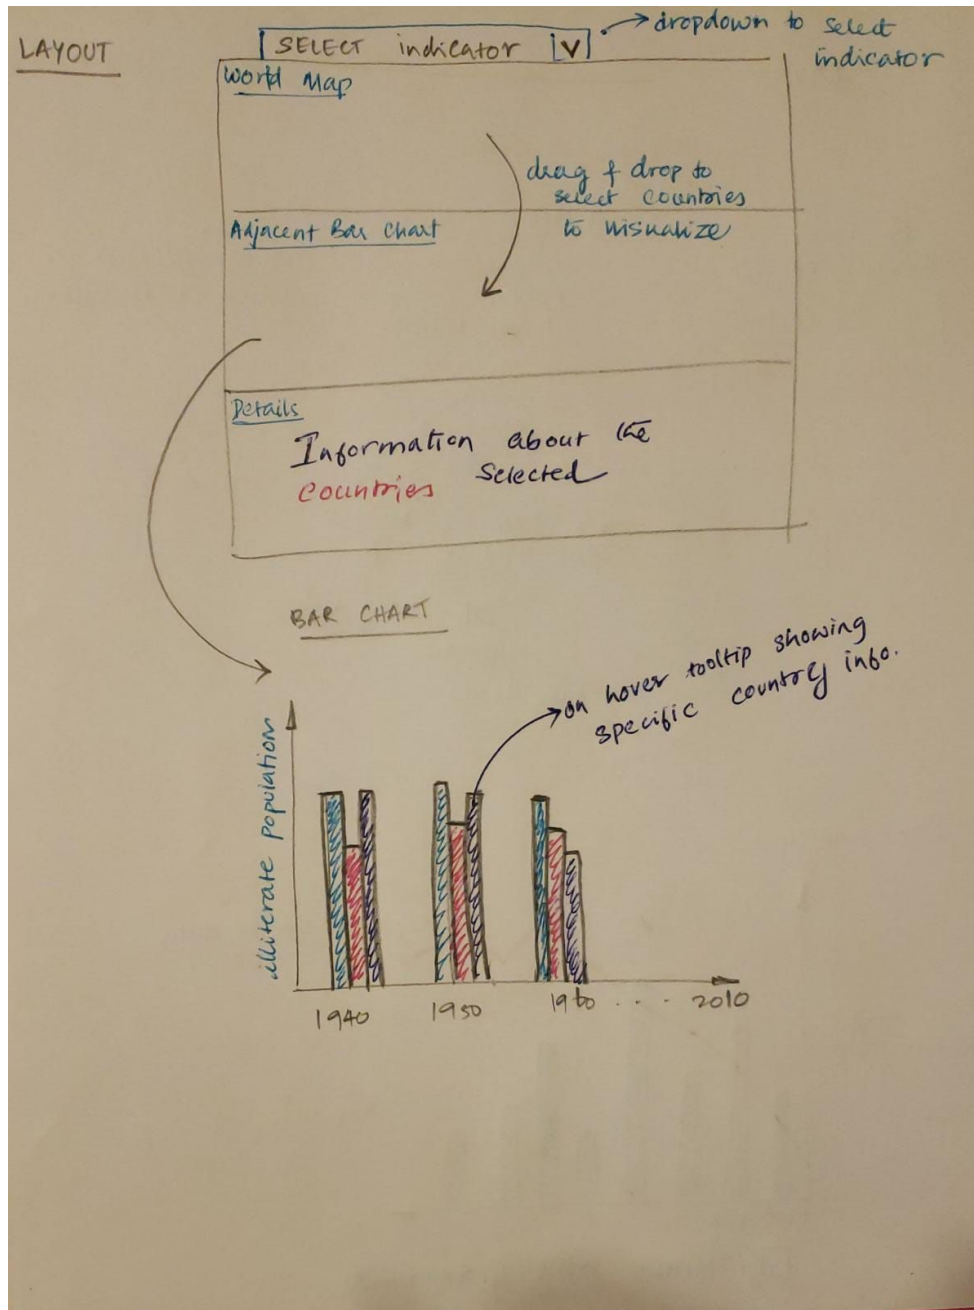 LAYOUT
SELECT indicator V
dropdown to select
indicator
World Map
drag & drop to
select countries
to visualize
Adjacent Bar Chart
Details
Information about the
countries selected
BAR CHART
on hover tooltip showing
specific country info.
illiterate population
1940 1950 1960 . . . 2010